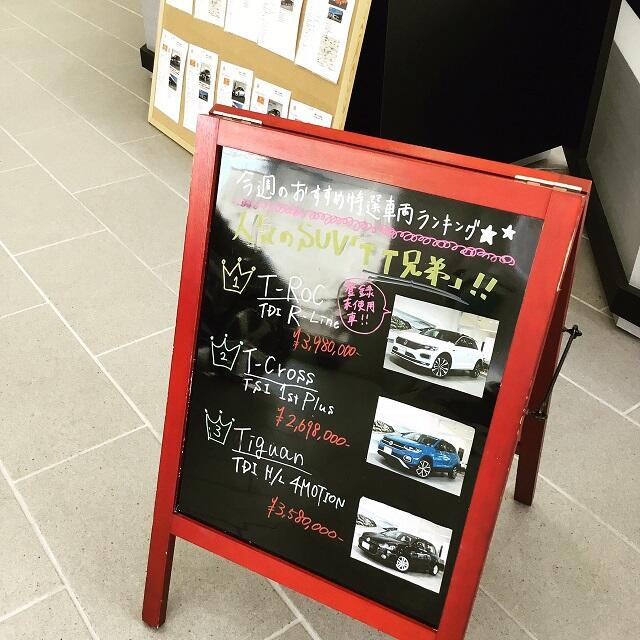 今週のおすすめ特選車両ランキング★★
人気のSUV「T兄弟」!!
1
T-Roc
TDI R-Line
登録
未使用
車!!
¥3,980,000-
2
T-Cross
TSI 1st Plus
¥2,698,000-
3
Tiguan
TDI H/L 4MOTION
¥3,580,000-